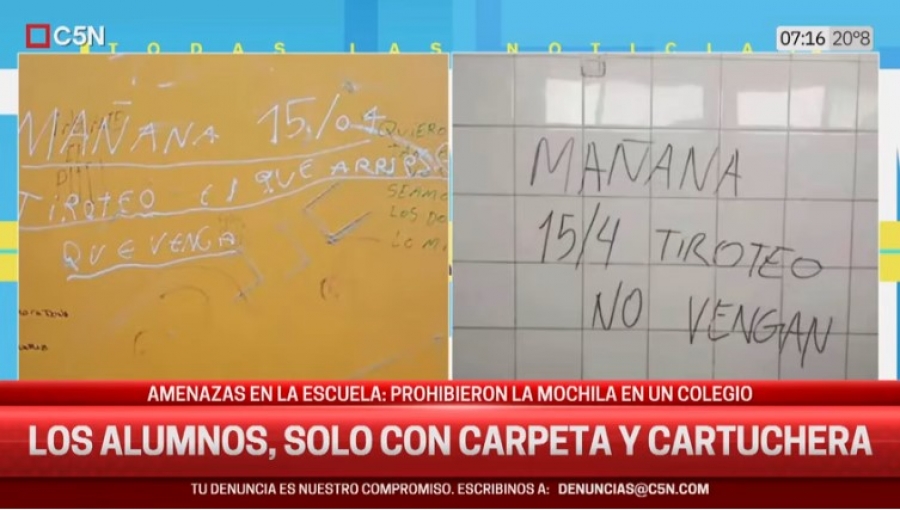 C5N
TODAS LAS NOTICIA
07:16 20°8
MAÑANA 15/04
TIROTEO EL QUE ARRIESGA
QUE VENGA
QUIERO
SEAMO
LOS DO
LO M
MAÑANA
15/4 TIROTEO
NO VENGAN
AMENAZAS EN LA ESCUELA: PROHIBIERON LA MOCHILA EN UN COLEGIO
LOS ALUMNOS, SOLO CON CARPETA Y CARTUCHERA
TU DENUNCIA ES NUESTRO COMPROMISO. ESCRIBINOS A: DENUNCIAS@C5N.COM